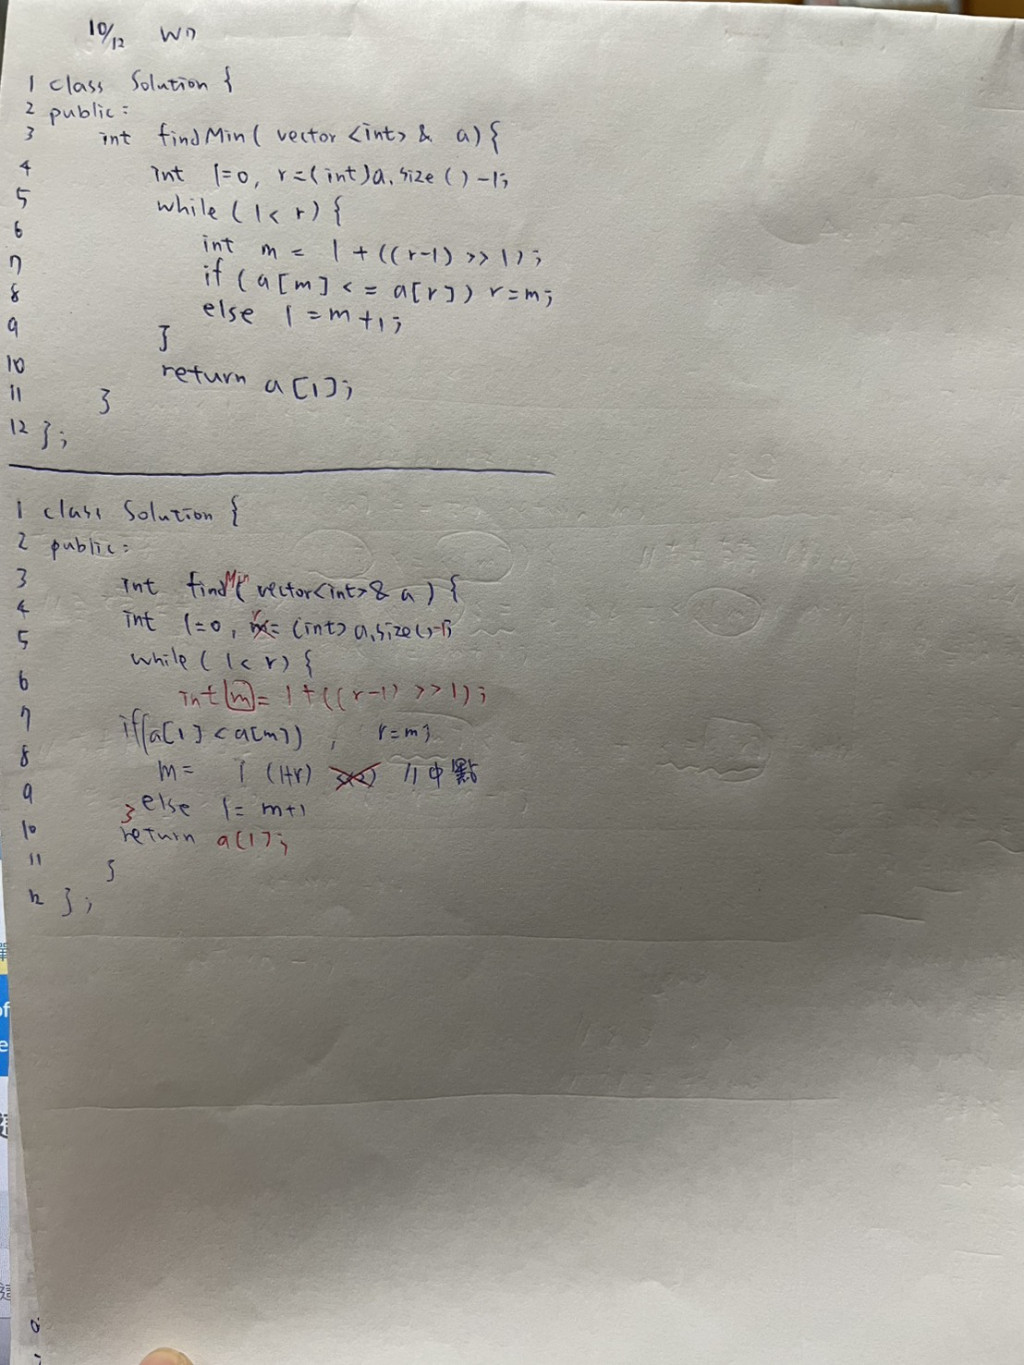 10/12 W7
1 class Solution {
2 public:
3 int findMin( vector<int> & a){
4 int l=0, r=(int)a.size()-1;
5 while (l<r){
6 int m = l+((r-l)>>1);
7 if(a[m]<=a[r]) r=m;
8 else l=m+1;
9 }
10 return a[l];
11 }
12 };
1 class Solution {
2 public:
3 int findMin( vector<int>& a ) {
4 int l=0, r= (int) a.size()-1;
5 while ( l<r ) {
6 int m = l+((r-l)>>1);
7 if(a[l]<a[m]) ; r=m;
8 m= l (l+r) //中點
9 } else l= m+1
10 return a[l];
11 }
12 };